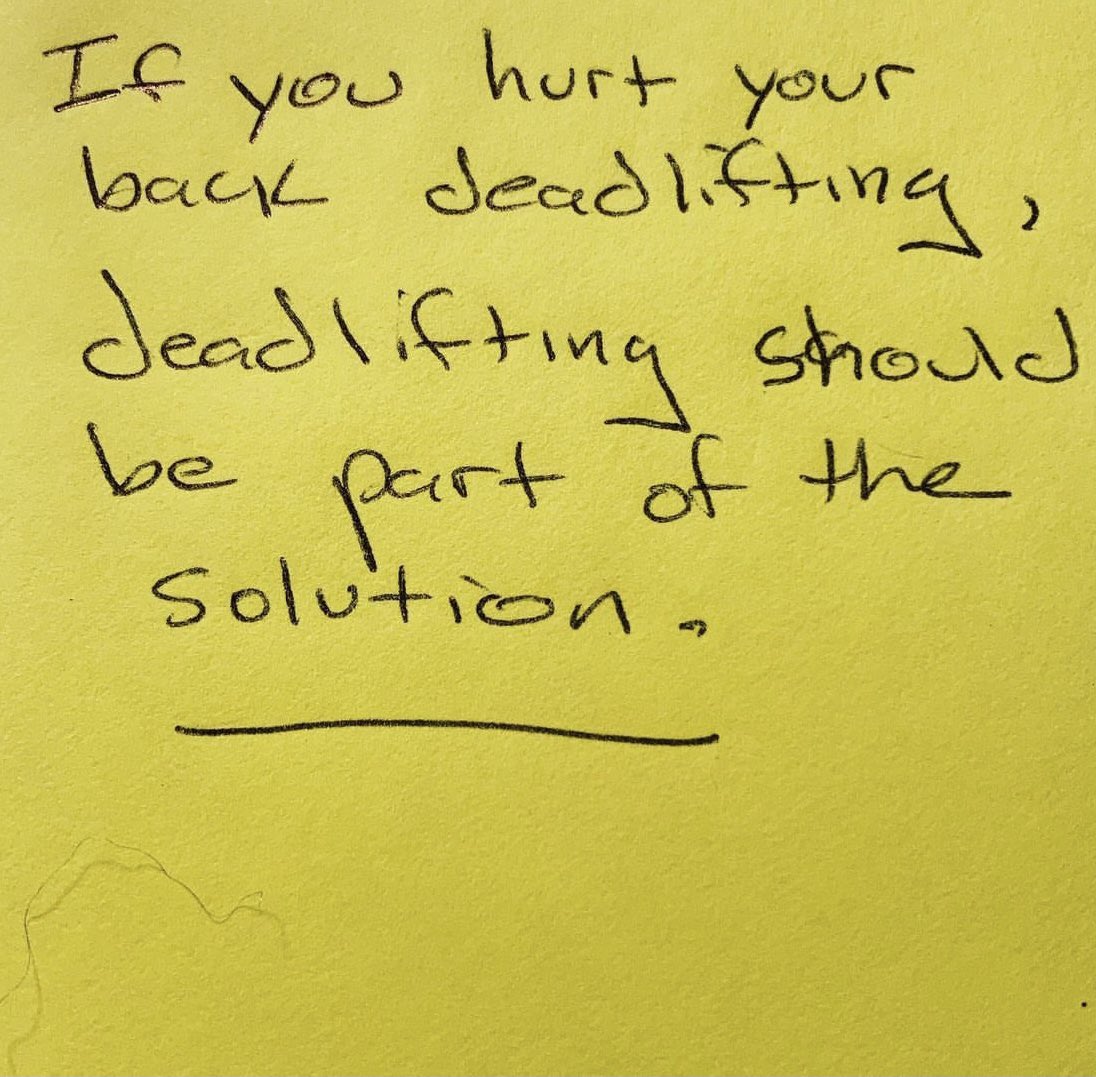 If you hurt your
back deadlifting,
deadlifting should
be part of the
solution.